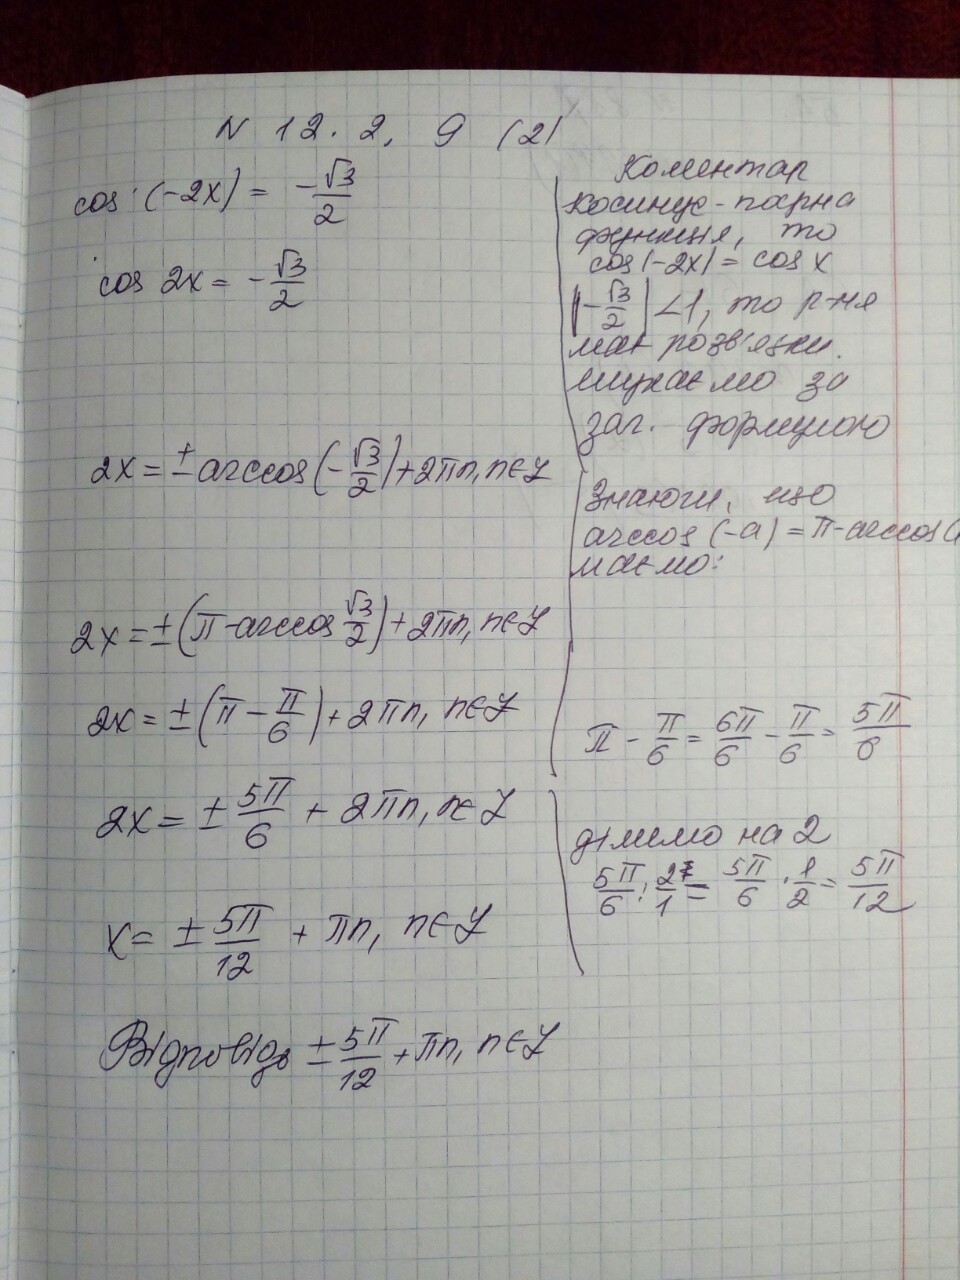 N 12.2, 9 (2)
cos (-2x) = -√3/2
cos 2x = -√3/2
2x = ± arccos (-√3/2) + 2πn, n∈Z
2x = ± (π - arccos √3/2) + 2πn, n∈Z
2x = ± (π - π/6) + 2πn, n∈Z
2x = ± 5π/6 + 2πn, n∈Z
x = ± 5π/12 + πn, n∈Z
Відповідь ± 5π/12 + πn, n∈Z
Коментар
косинус - парна
функція, то
cos(-2x) = cos x
|-√3/2| < 1, то р-ня
має розв'язки.
шукаємо за
заг. формулою
Знаючи, що
arccos (-a) = π - arccos a
маємо:
π - π/6 = 6π/6 - π/6 = 5π/6
ділимо на 2
5π/6 : 2/1 = 5π/6 · 1/2 = 5π/12